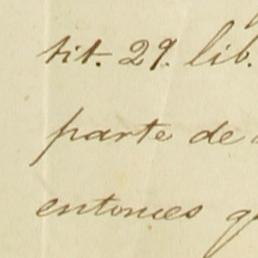 tit. 29. lib.
parte de
entonces q